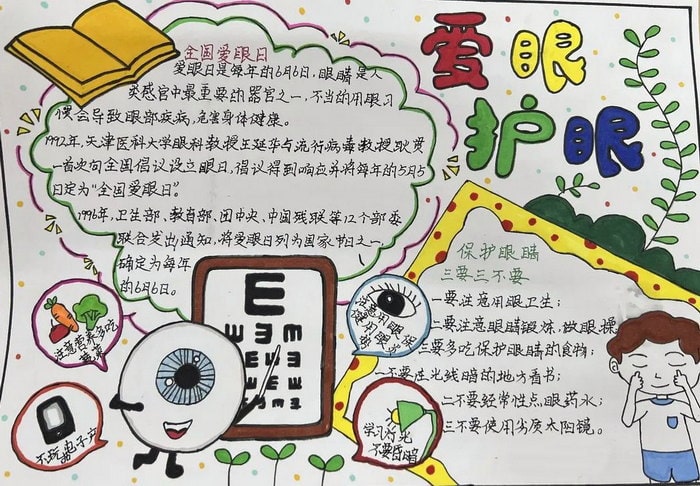 爱眼
护眼
全国爱眼日
爱眼日是每年的6月6日,眼睛是人
类感官中最重要的器官之一,不当的用眼习
惯会导致眼部疾病,危害身体健康。
1992年,天津医科大学眼科教授王延华与流行病毒教授耿贯
一首次向全国倡议设立眼日,倡议得到响应并将每年的5月5
日定为“全国爱眼日”。
1996年,卫生部、教育部、团中央、中国残联等12个部委
联合发出通知,将爱眼日列为国家节日之一,
确定为每年
的6月6日。
保护眼睛
三要三不要
一要注意用眼卫生;
二要注意眼睛锻炼,做眼操
三要多吃保护眼睛的食物;
一不要在光线暗的地方看书;
二不要经常性点眼药水;
三不要使用劣质太阳镜。
注意营养多吃
注意用眼
不玩电子产
学习灯光
不要昏暗
E